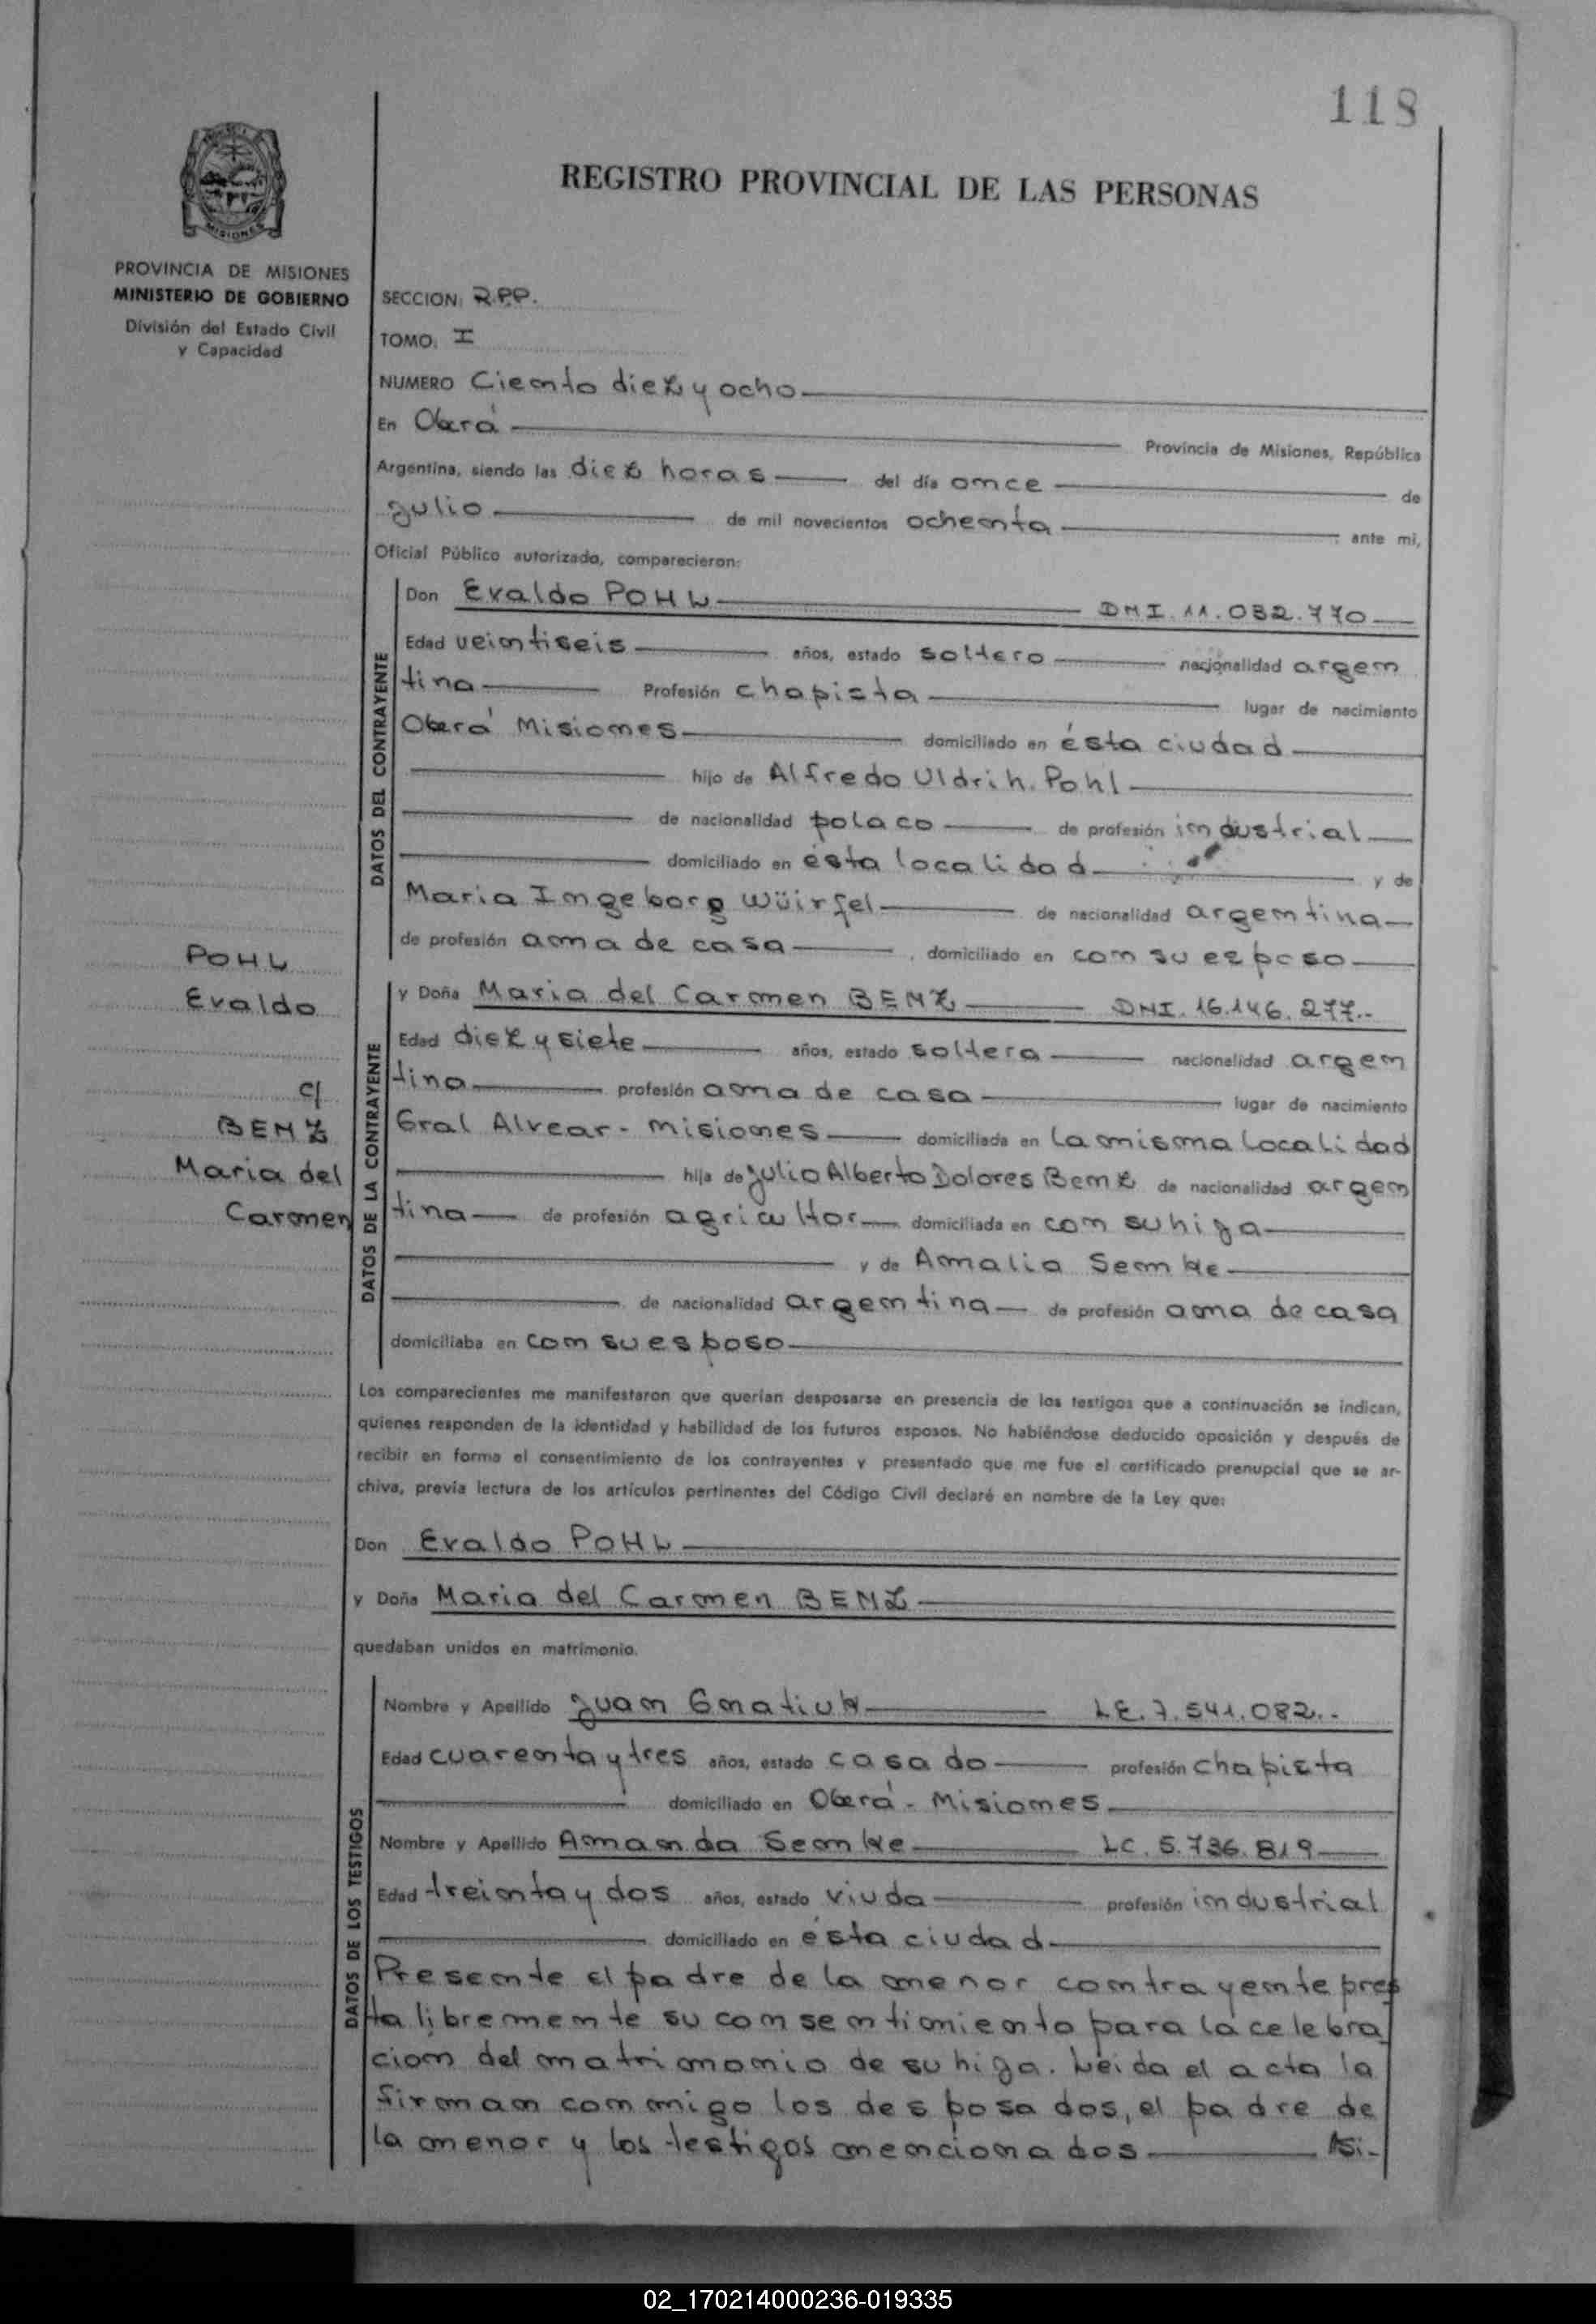 118
REGISTRO PROVINCIAL DE LAS PERSONAS
MISIONES
PROVINCIA DE MISIONES
MINISTERIO DE GOBIERNO
División del Estado Civil
y Capacidad
SECCION: R.P.P.
TOMO: I
NUMERO Ciento diez y ocho
En Oberá Provincia de Misiones, República
Argentina, siendo las diez horas del día once de
julio de mil novecientos ochenta ante mi,
Oficial Público autorizado, comparecieron:
DATOS DEL CONTRAYENTE
Don Evaldo POHL DNI. 11.032.770
Edad veintiseis años, estado soltero nacionalidad argen
tina Profesión chapista lugar de nacimiento
Oberá Misiones domiciliado en ésta ciudad
hijo de Alfredo Uldrih. Pohl
de nacionalidad polaco de profesión industrial
domiciliado en ésta localidad y de
Maria Ingeborg Wüirfel de nacionalidad argentina
de profesión ama de casa, domiciliado en con su esposo
POHL
Evaldo
c/
BENZ
Maria del
Carmen
DATOS DE LA CONTRAYENTE
y Doña Maria del Carmen BENZ DNI. 16.146.277.-
Edad diez y siete años, estado soltera nacionalidad argen
tina profesión ama de casa lugar de nacimiento
Gral Alvear - Misiones domiciliada en la misma localidad
hija de Julio Alberto Dolores Benz de nacionalidad argen
tina de profesión agricultor domiciliada en con su hija
y de Amalia Semke
de nacionalidad argentina de profesión ama de casa
domiciliaba en con su esposo
Los comparecientes me manifestaron que querían desposarse en presencia de los testigos que a continuación se indican,
quienes responden de la identidad y habilidad de los futuros esposos. No habiéndose deducido oposición y después de
recibir en forma el consentimiento de los contrayentes y presentado que me fue el certificado prenupcial que se ar-
chiva, previa lectura de los artículos pertinentes del Código Civil declaré en nombre de la Ley que:
Don Evaldo POHL
y Doña Maria del Carmen BENZ
quedaban unidos en matrimonio.
DATOS DE LOS TESTIGOS
Nombre y Apellido Juan Gnatiuk LE. 7.541.082.-
Edad cuarenta y tres años, estado casado profesión chapista
domiciliado en Oberá - Misiones
Nombre y Apellido Amanda Semke LC. 5.736.819
Edad treinta y dos años, estado viuda profesión industrial
domiciliado en ésta ciudad
Presente el padre de la menor contrayente pres
ta libremente su consentimiento para la celebra
cion del matrimonio de su hija. Leida el acta la
firman conmigo los desposados, el padre de
la menor y los testigos mencionados
02_170214000236-019335